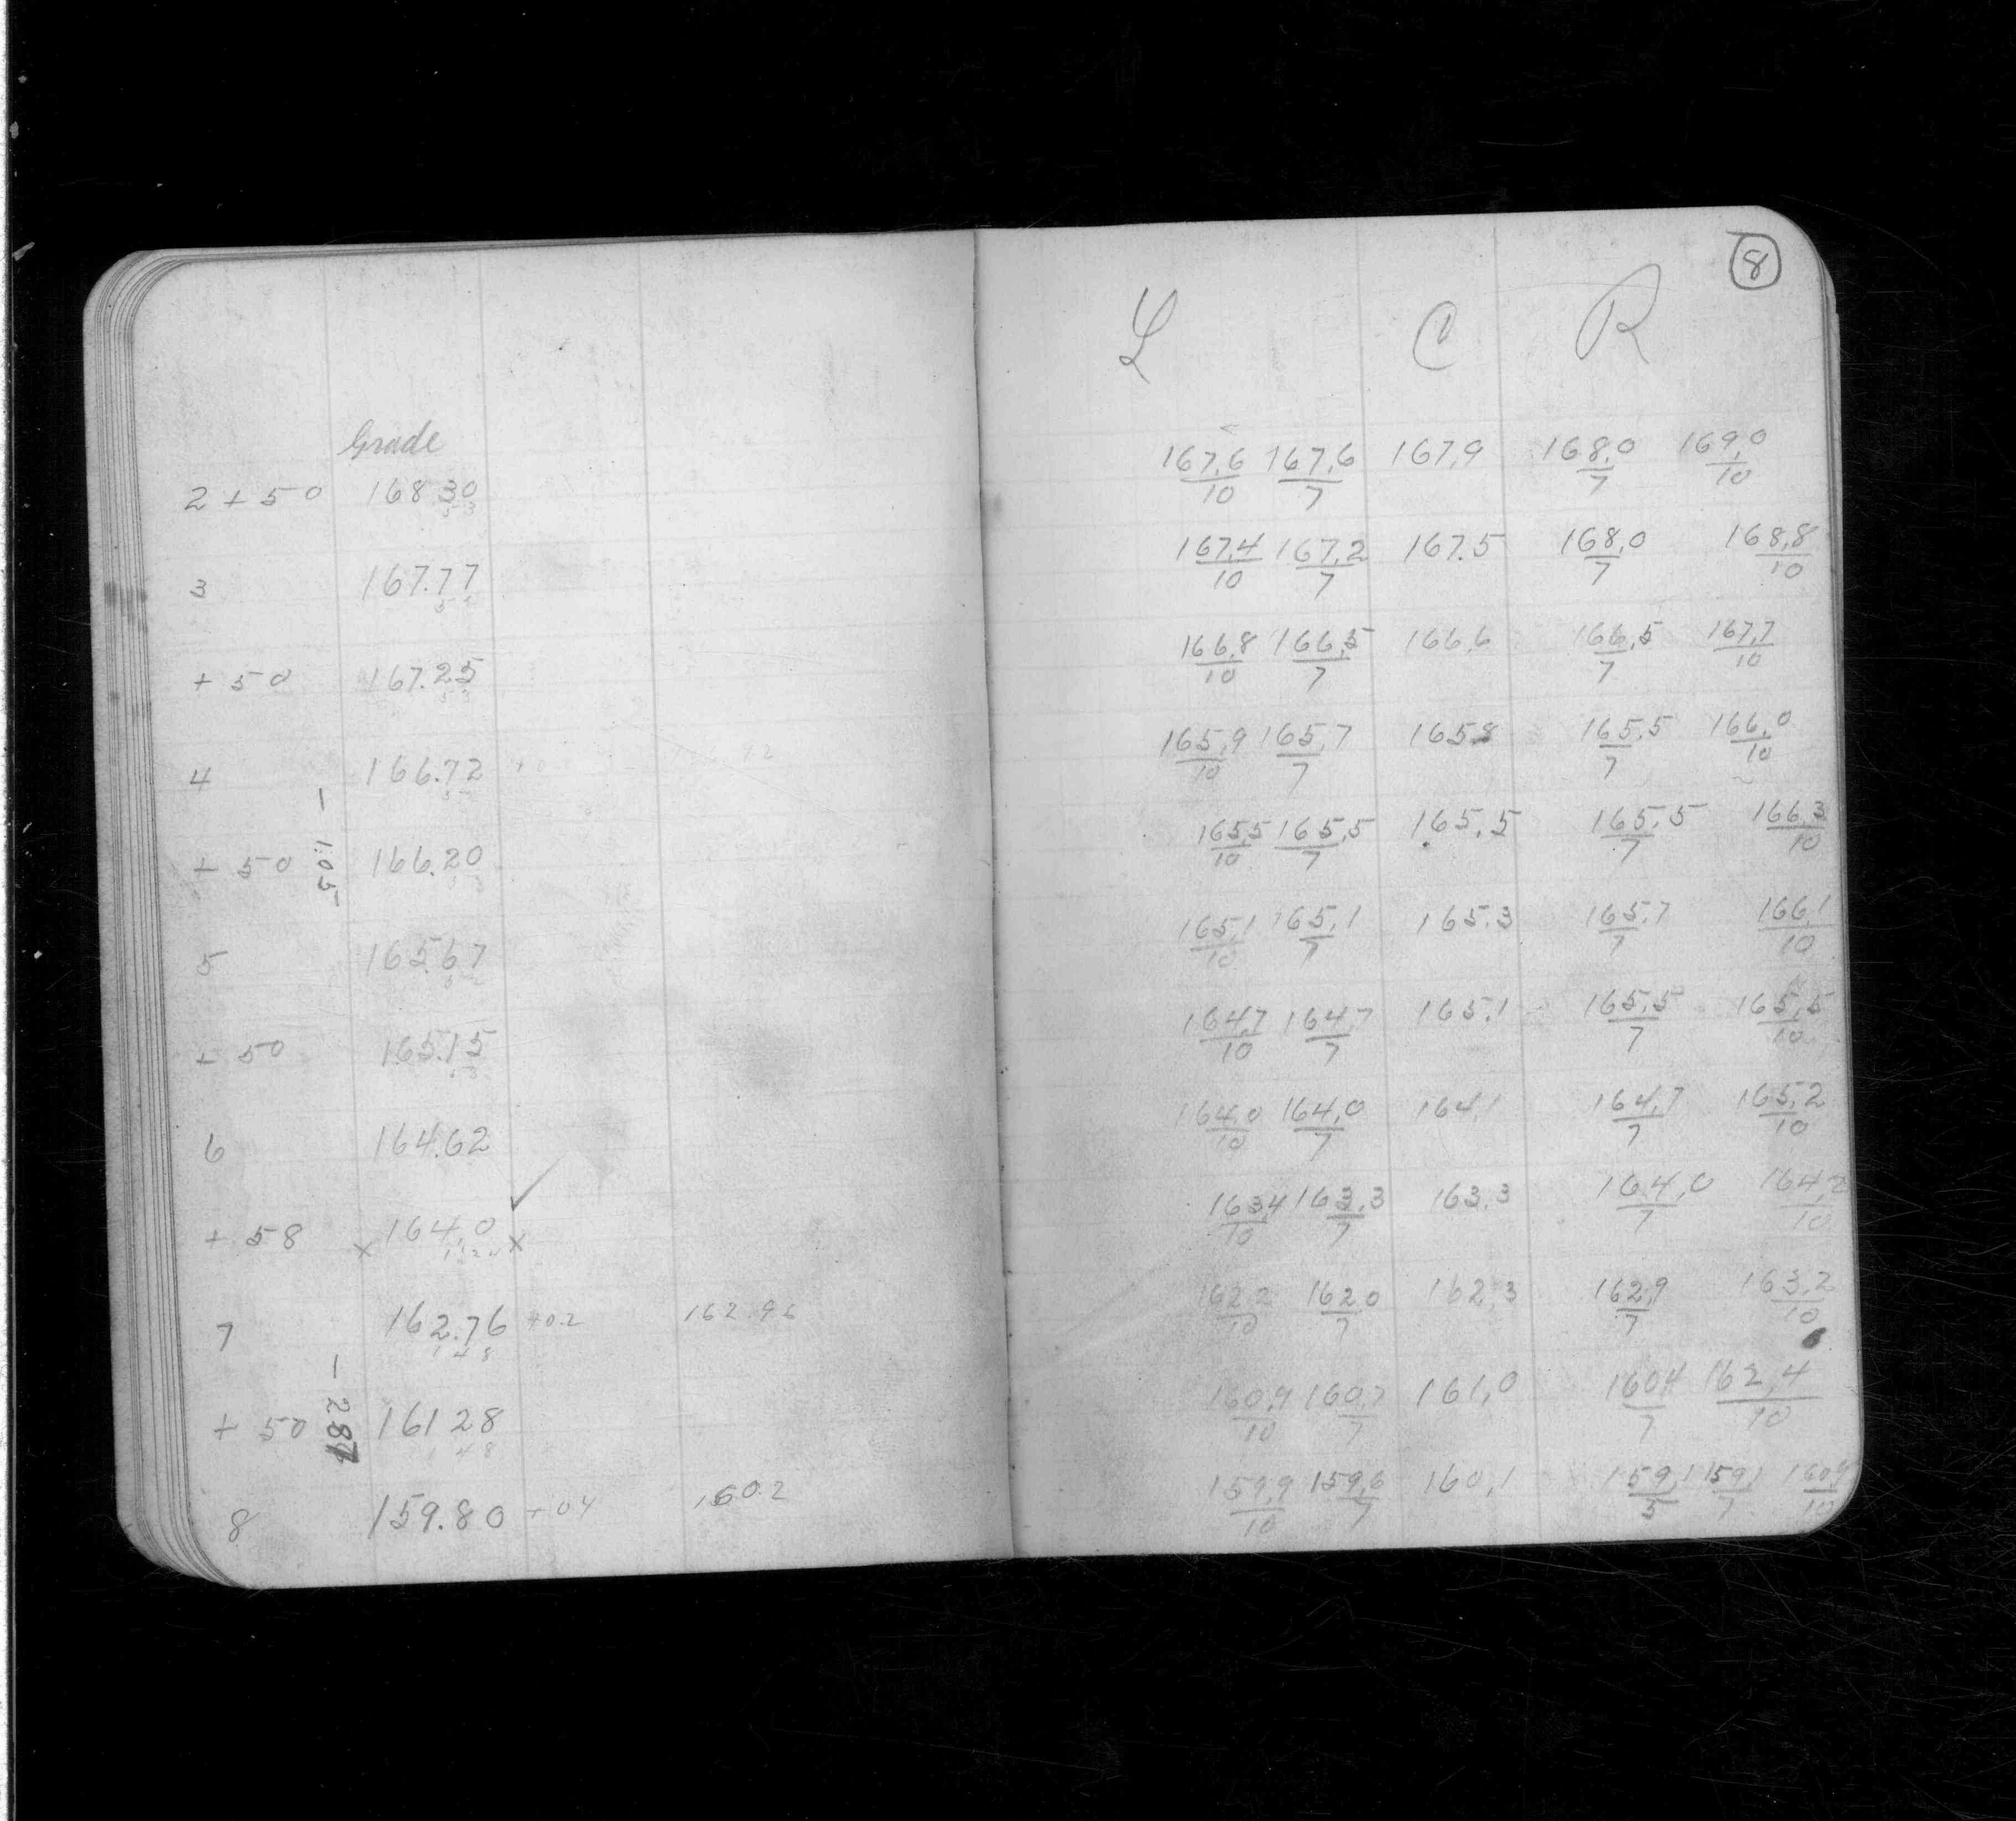 8
L C R
Grade
2 + 50 168 30 167.6/10 167.6/7 167.9 168.0/7 169.0/10
3 167.77 167.4/10 167.2/7 167.5 168.0/7 168.8/10
+ 50 167.25 166.8/10 166.5/7 166.6 166.5/7 167.7/10
4 166.72 165.9/10 165.7/7 165.8 165.5/7 166.0/10
- 1.05
+ 50 166.20 165.5/10 165.5/7 165.5 165.5/7 166.3/10
5 165.67 165.1/10 165.1/7 165.3 165.7/7 166.1/10
+ 50 165.15 164.7/10 164.7/7 165.1 165.5/7 165.5/10
6 164.62 164.0/10 164.0/7 164.1 164.7/7 165.2/10
+ 58 x 164.0 x ✓ 163.4/10 163.3/7 163.3 164.0/7 164.2/10
7 162.76 +0.2 162.96 162.2/10 162.0/7 162.3 162.9/7 163.2/10
1 48
- 287
+ 50 161 28 160.9/10 160.7/7 161.0 160.4/7 162.4/10
1 48
8 159.80 +04 160.2 159.9/10 159.6/7 160.1 159.1/5 159.1/7